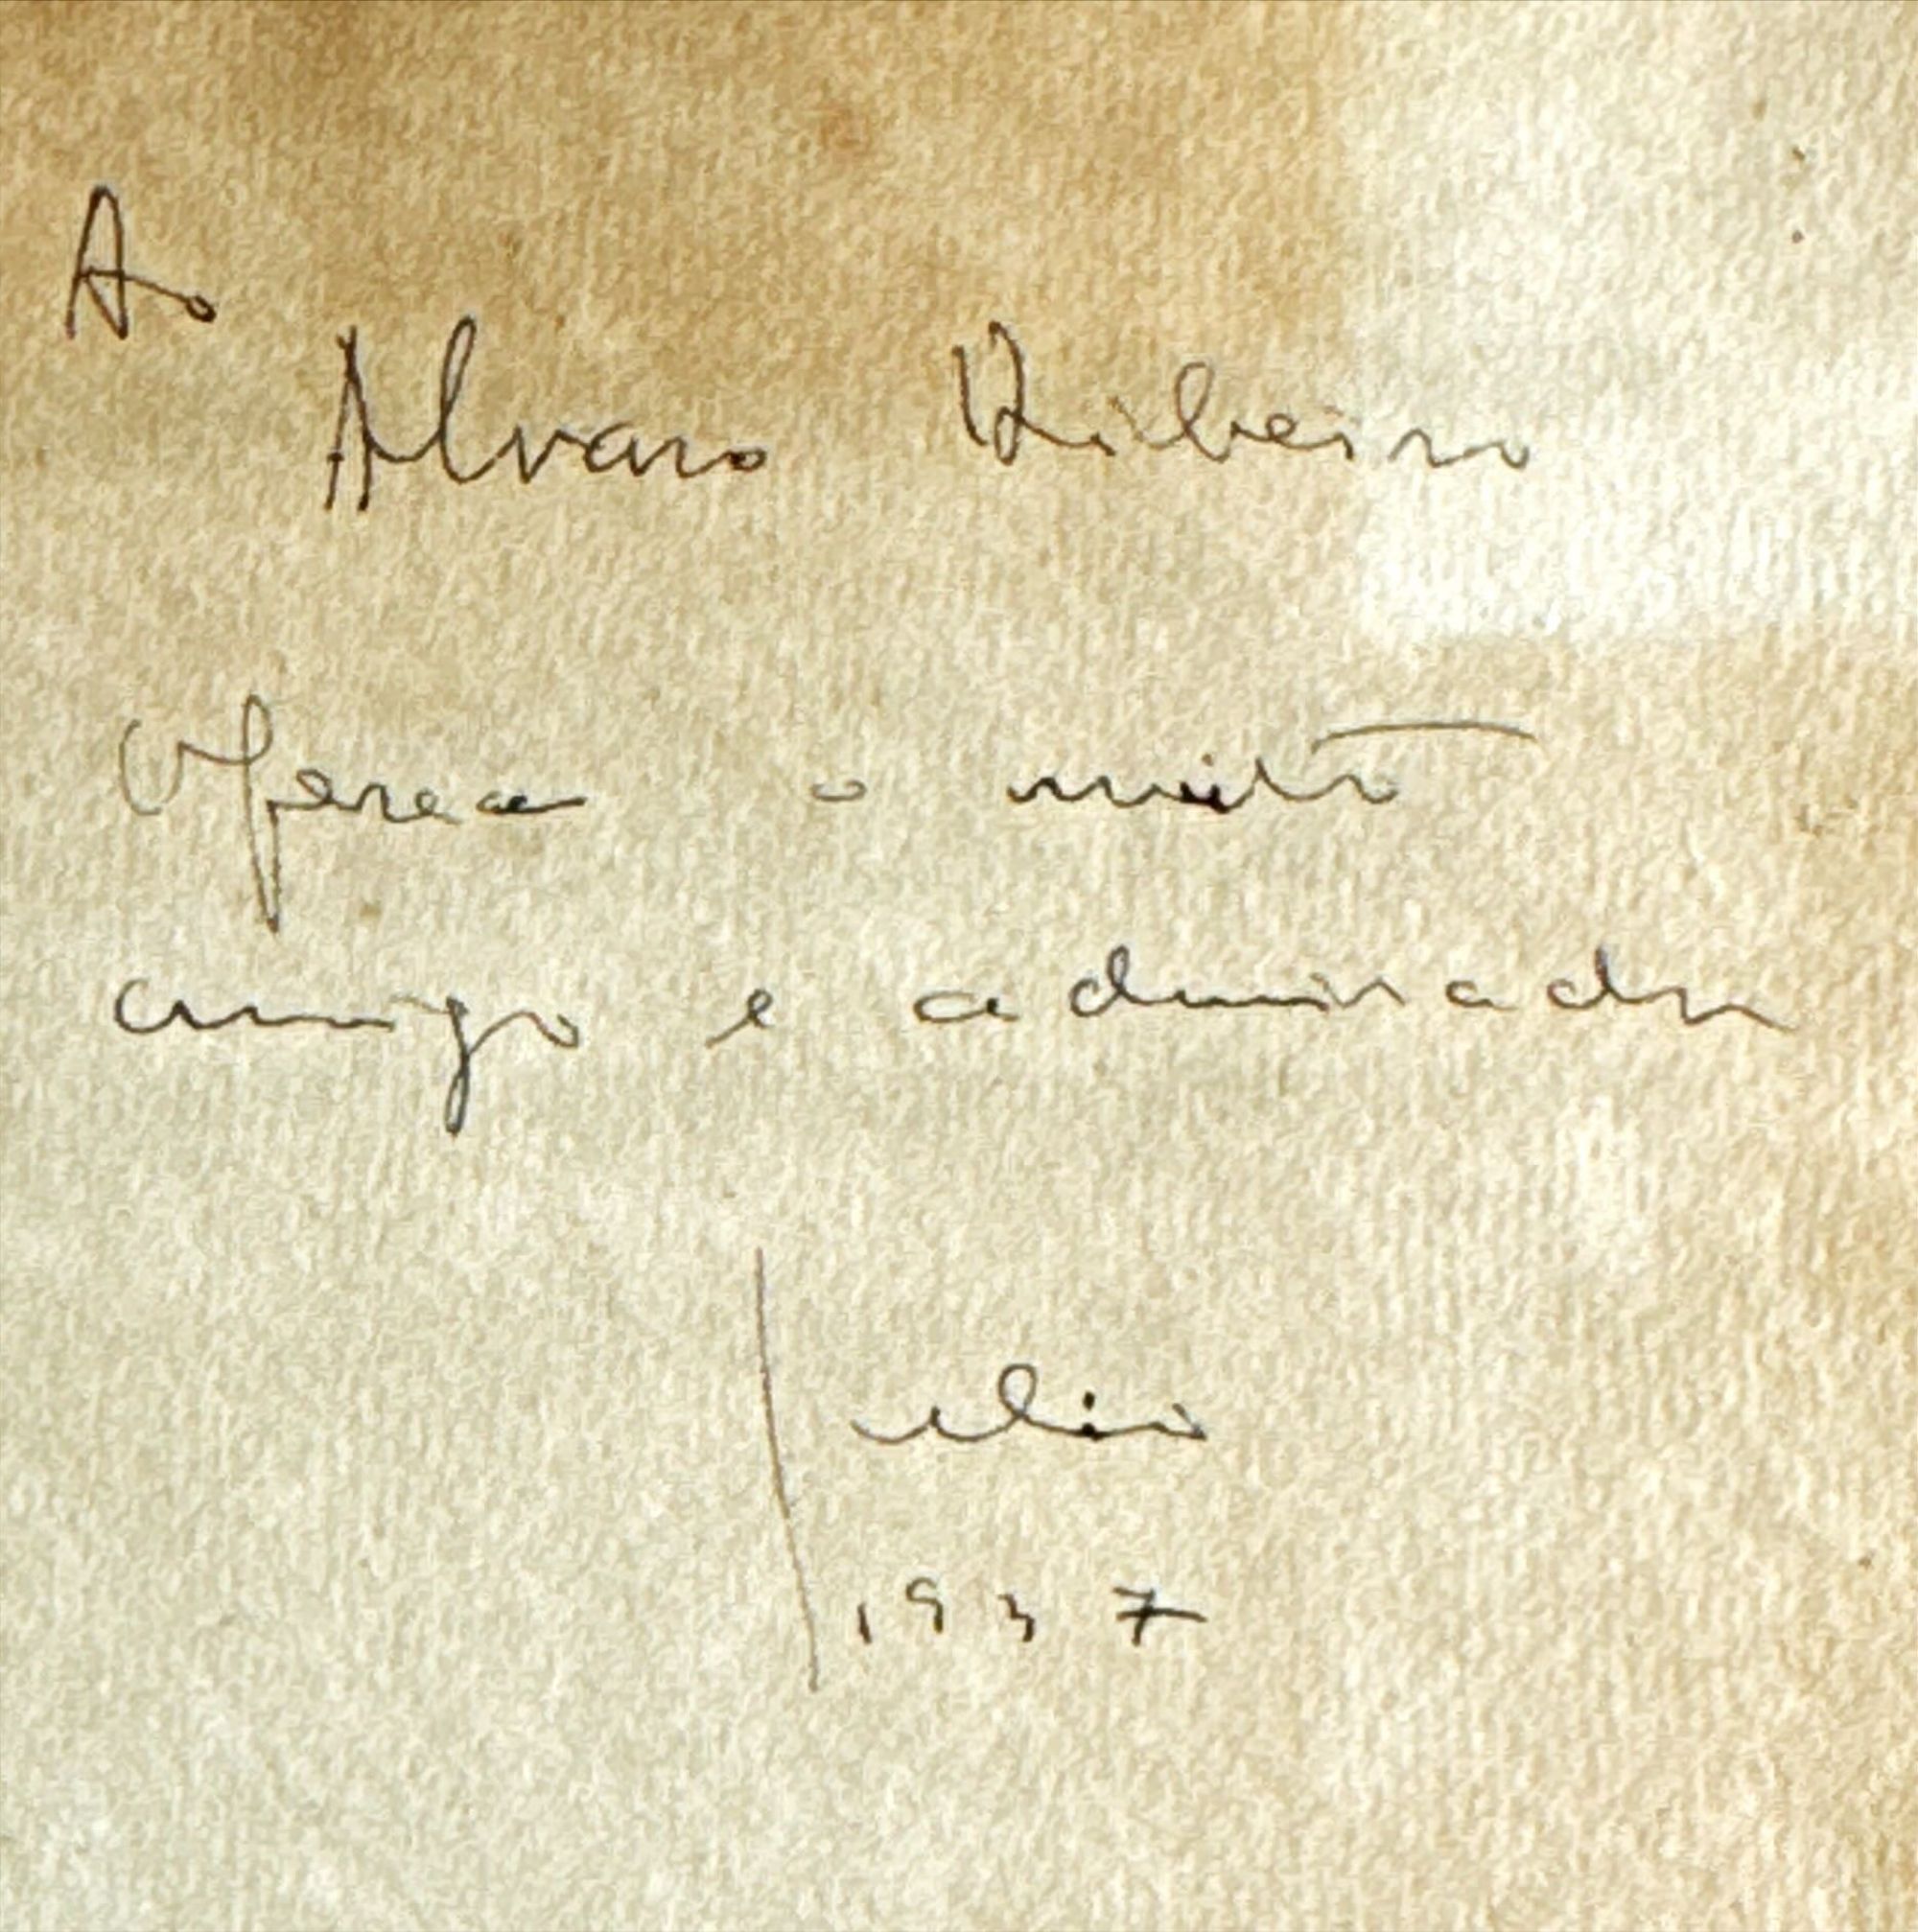 Ao
Alvaro Ribeiro
oferece o muito
amigo e admirador
Julio
1937